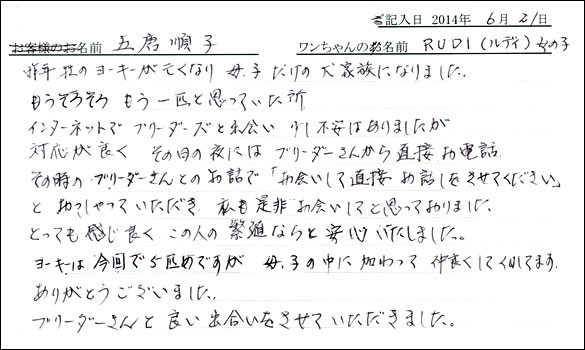 ご記入日 2014年 6月 21日
お客様のお名前 五磨 順子 ワンちゃんのお名前 RUDI(ルディ) 女の子
昨年 牡のヨーキーが亡くなり 母、子だけの犬家族になりました。
もうそろそろ もう一匹と思っていた所
インターネットで ブリーダーズと出会い 少し不安はありましたが
対応が良く その日の夜には ブリーダーさんから直接お電話
その時の ブリーダーさんとのお話で「お会いして直接 お話しをさせてください」
と おっしゃっていただき 私も是非 お会いしてと思っておりました。
とっても感じ良く この人の繁殖ならと安心いたしました。
ヨーキーは今回で5匹めですが 母、子の中に加わって 仲良くしてくれてます
ありがとうございました。
ブリーダーさんと良い出合いをさせていただきました。